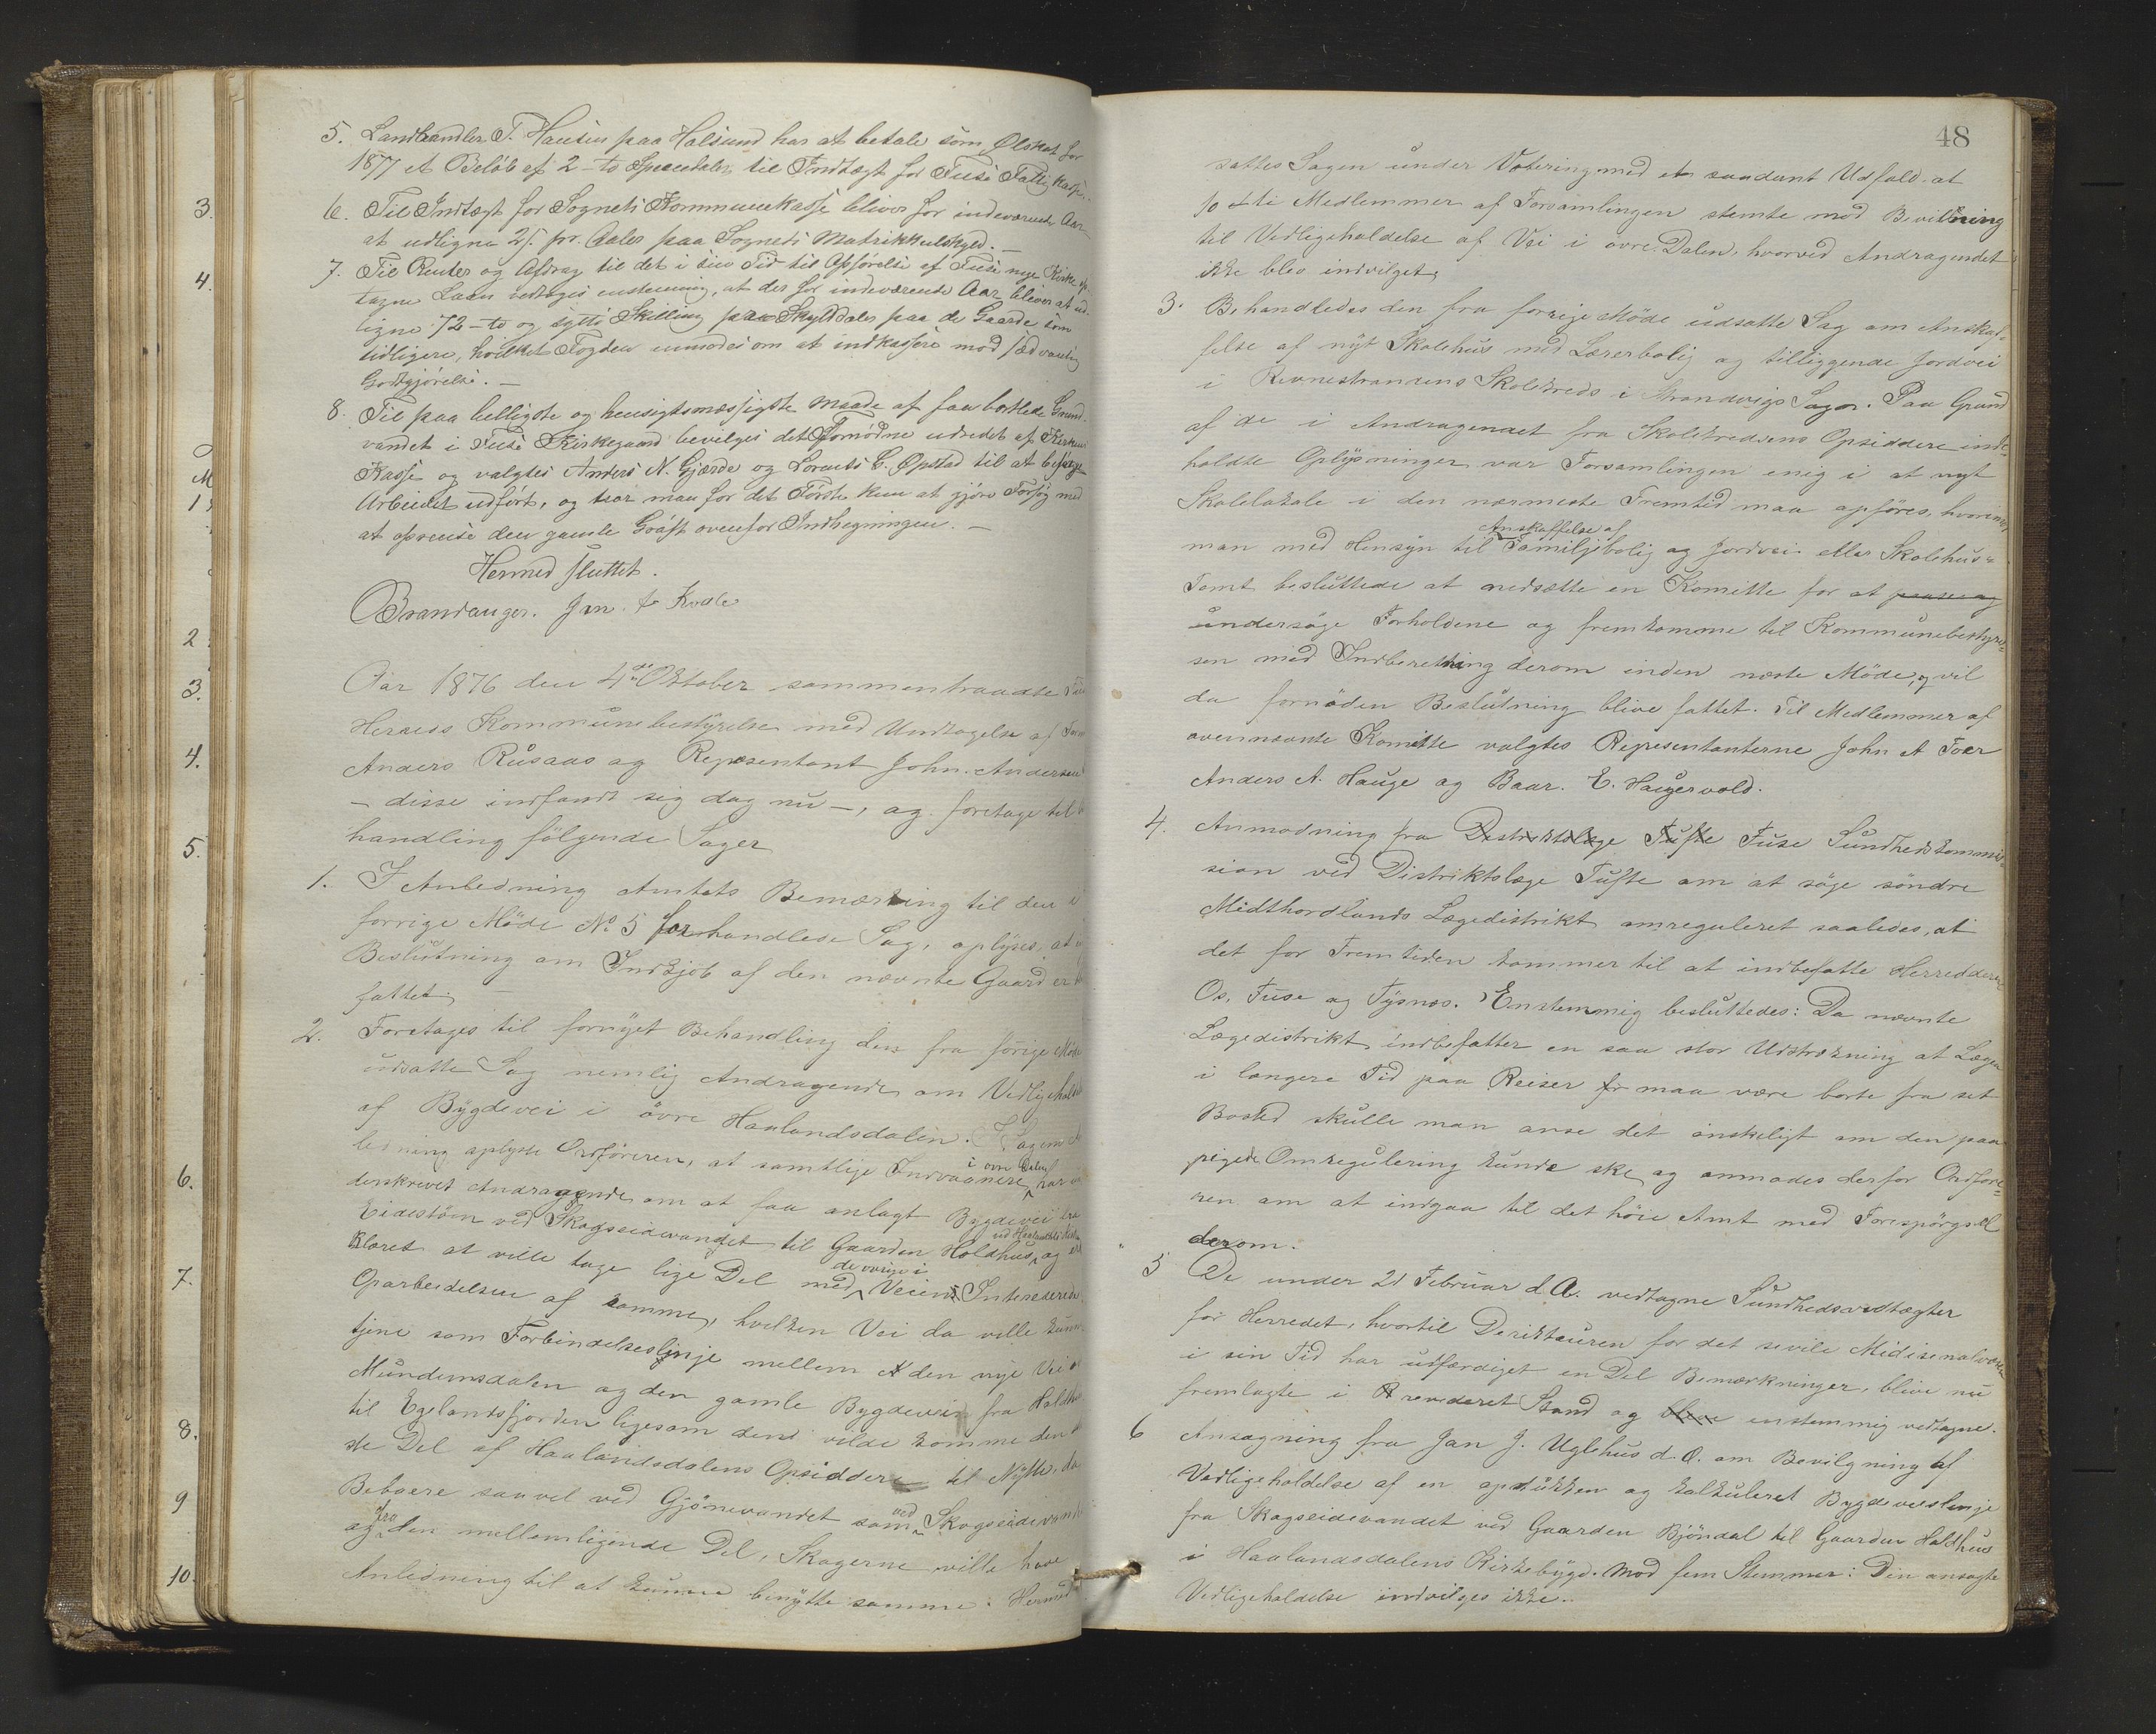 5. Landhandler T. Hansen paa Holsund har at betale som Ølskat for
1877 et Beløb af 2 - to Speciedaler til Indtægt for Fuse Fattigkasse.
6. Til Indtægt for Sognets Kommunekasse bliver for indeværende Aar
at udligne 2/. pr. Daler paa Sognets Matrikkulskyld. —
7. Til Renter og Afdrag til det i sin Tid til Opførelse af Fuse nye Kirke op-
tagne Laan vedtoges enstemmig, at der for indeværende Aar bliver at ud-
ligne 72 - to og sytti Skilling pr. Skylddaler paa de Gaarde som
tidligere, hvilket Fogden anmodes om at indkassere mod sædvanlig
Godtgjørelse. —
8. Til paa belligste og hensigtsmæssigste Maade at faa bortlede Grund-
vandet i Fuse Kirkegaard bevilges det Fornødne udredet af Kirkens
Kasse og valgtes Anders N. Gjærde og Lorents C. Øpstad til at besørge
Arbeidet udført, og tror man for det Første kun at gjøre Forsøg med
at oprense den gamle Grøft ovenfor Indhegningen. —
Hermed sluttet.
Brandanger. Jon. Kvale
Aar 1876 den 4de Oktober sammentraadte Fuse
Herreds Kommunebestyrelse med Undtagelse af
Anders Rusaas og Repæsentant John. Andersen
– disse indfandt sig dog nu –, og foretoge til
handling følgende Sager
1. I Anledning Amtets Bemærkning til den i
forrige Møde No 5 forhandlede Sag, oplyses, at
Beslutning om Indkjøb af den nævnte Gaard er
fattet.
2. Foretages til fornyet Behandling den fra forige Møde
udsatte Sag nemlig Andragende om Vedligehold
af Bygdevei i øvre Haalandsdalen. I Sagens
ledning oplyste Ordføreren, at samtlige Indvaanere i øvre Dalen har
derskrevet Andragende om at faa anlagt Bygdevei fra
Eidestøen ved Skogseidevandet til Gaarden Holdhus ved Haalandsdals, og
klæret at ville tage lige Del med de øvrige i Veiens Interesserede
Oparbeidelsen af samme, hvilken Vei da ville kunne
tjene som Forbindelseslinje mellem den nye Vei
Mundemsdalen og den gamle Bygdevei fra Holdhus
til Egelandsfjorden ligesom den vilde komme den
ste Del af Haalandsdalens Opsiddere til Nytte, da
Beboere saavel ved Gjønevandet som ved Skogseidevandet
og fra den mellemligende Del, Skogerne ville have
Anledning til at kunne benytte samme. Hermed
48
sattes Sagen under Votering med et saadant Udfald, at
10 ti Medlemmer af Forsamlingen stemte mod Bevilning
til Vedligeholdelse af Vei i øvre Dalen, hvorved Andragendet
ikke blev indvilget.
3. Behandledes den fra forrige Møde udsatte Sag om Anskaf-
felse af nyt Skolehus med Lærerbolig og tilliggende Jordvei
i Revnestrandens Skolekreds i Strandvigs Sogn. Paa Grund
af de i Andragendet fra Skolekredsens Opsiddere inde-
holdte Oplysninger var Forsamlingen enig i at nyt
Skolelokale i den nærmeste Fremtid maa opføres, hvorimod
man med Hensyn til Anskaffelse af Familjebolig og Jordvei eller Skolehus-
Tomt besluttede at nedsætte en Komitte for at
undersøge Forholdene og fremkomme til Kommunebestyrel-
sen med Indberetning derom inden næste Møde, og vil
da fornøden Beslutning blive fattet. Til Medlemmer af
ovennævnte Komitte valgtes Representanterne John A Tvær
Anders A. Hauge og Baar. E. Haugervold.
4. Anmodning fra Distriktslæge Tufte Fuse Sundhedskommis-
sion ved Distriktslæge Tufte om at søge søndre
Midthordlands Lægedistrikt omreguleret saaledes, at
det for Fremtiden kommer til at indbefatte Herrederne
Os, Fuse og Tysnæs. Enstemmig besluttedes: Da nævnte
Lægedistrikt indbefatter en saa stor Udstrækning at Lægen
i længere Tid paa Reiser maa være borte fra set
Bosted skulle man anse det ønskeligt om den paa-
pegede Omregulering kunde ske og anmodes derfor Ordføre-
ren om at indgaa til det høie Amt med Forespørgsel
derom.
5 De under 21 Februar d. A. vedtagne Sundhedsvedtægter
for Herredet, hvortil Deriktøren for det sivile Midisenalvæsen
i sin Tid har udfærdiget en Del Bemærkninger, blive nu
fremlagte i revideret Stand og blive enstemmig vedtagne.
6 Ansøgning fra Jan J. Uglehus d. O. om Bevilgning af
Vedligeholdelse af en opstukken og kalkuleret Bygdeveislinje
fra Skogseidevandet ved Gaarden Bjøndal til Gaarden Holdhus
i Haalandsdalens Kirkebygd. Mod fem Stemmer: Den ansøgte
Vedligeholdelse indvilges ikke.
3.
4.
M
1
2
3.
4.
5.
6.
7.
8.
9
10.